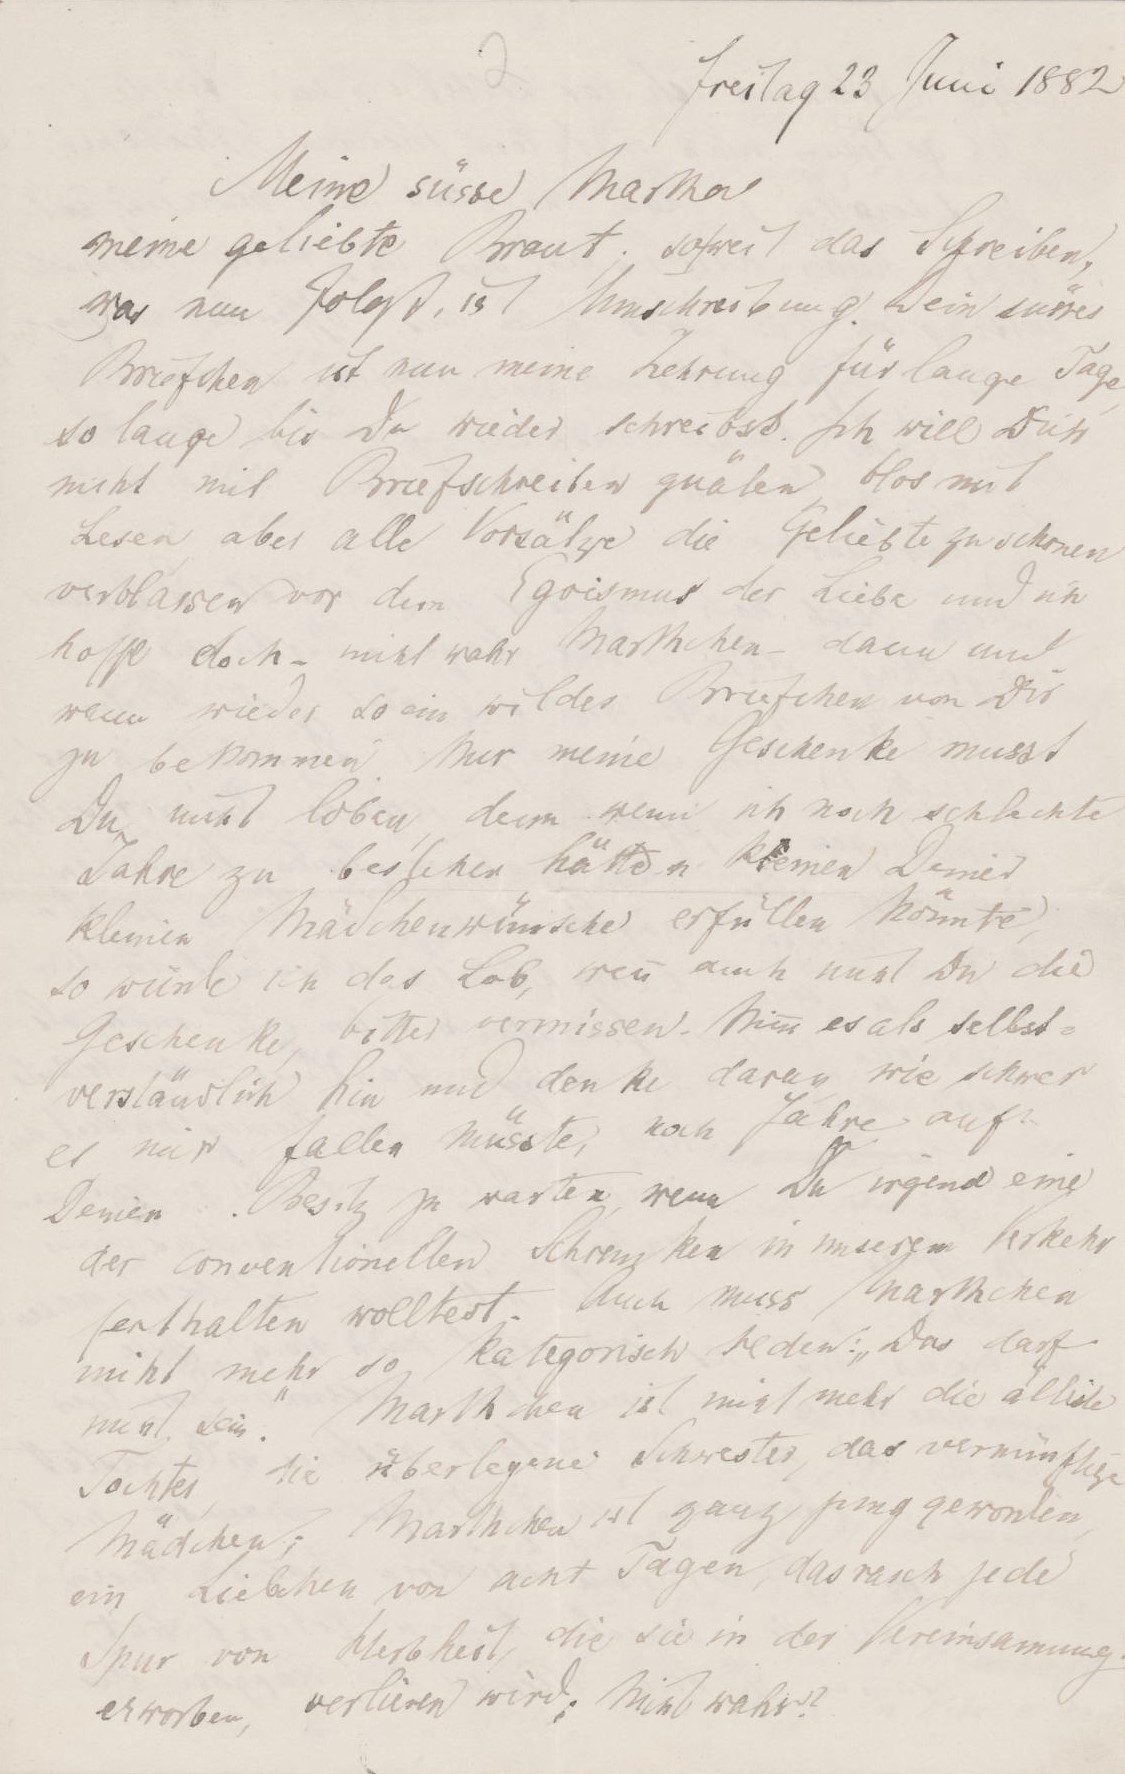 Freitag 23 Juni 1882
Meine süsse Martha
meine geliebte Braut. soweit das Schreiben,
was nun folgt, ist Umschreibung. Dein süsses
Briefchen ist nun meine Zehrung für lange Tage,
so lange bis Du wieder schreibst. Ich will Dich
nicht mit Briefschreiben quälen, blos mit
Lesen, aber alle Vorsätze die Geliebte zu schonen
verblassen vor dem Egoismus der Liebe und ich
hoffe doch – nicht wahr Marthchen – dann und
wann wieder so ein wildes Briefchen von Dir
zu bekommen. Nur meine Geschenke musst
Du nicht loben, denn wenn ich noch schlechte
Jahre zu bestehen hätte n keinen Deiner
kleinen Mädchenwünsche erfüllen könnte,
so würde ich das Lob, wen̅ auch nicht Du die
Geschenke, bitter vermissen. Nim̅ es als selbst=
verständlich hin und denke daran wie schwer
es mir fallen müsste, noch Jahre auf
Deinen Besitz zu warten, wenn Du irgend eine
der conventionellen Schranken in unserem Verkehr
festhalten wolltest. Auch muss Marthchen
nicht mehr so kategorisch reden: „Das darf
nicht sein." Marthchen ist nicht mehr die älteste
Tochter, die überlegene Schwester, das vernünftige
Mädchen; Marthchen ist ganz jung geworden,
ein Liebchen von acht Tagen, das rasch jede
Spur von Herbheit, die sie in der Vereinsamung
erworben, verlieren wird; Nicht wahr?